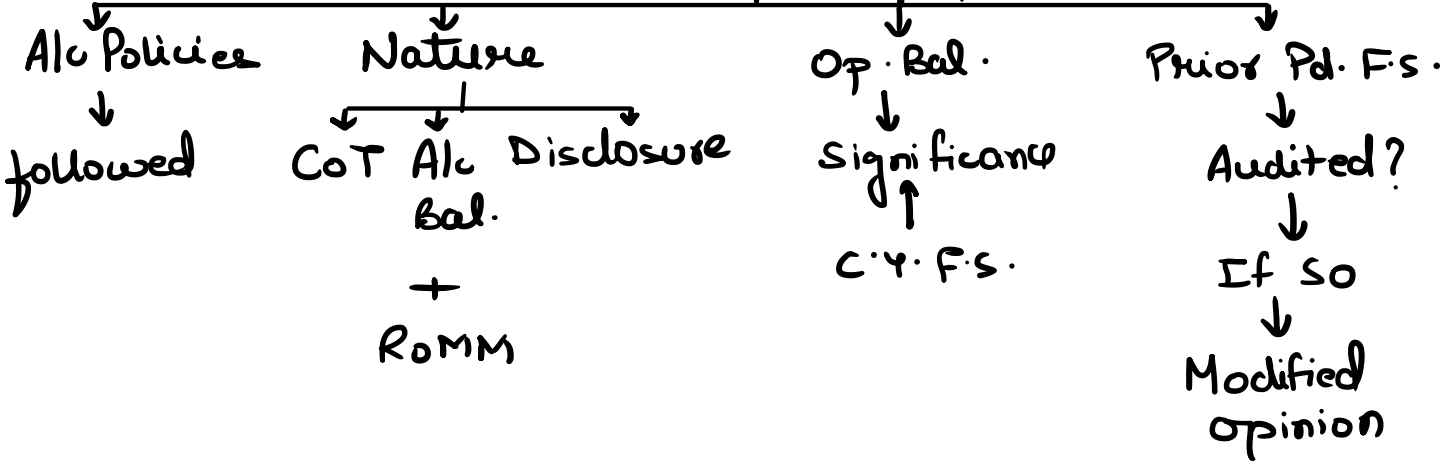 A/c Policies
followed
Nature
CoT A/c Disclosure
Bal.
+
RoMM
Op. Bal.
Significance
C.Y. F.S.
Prior Pd. F.S.
Audited?
If so
Modified
opinion